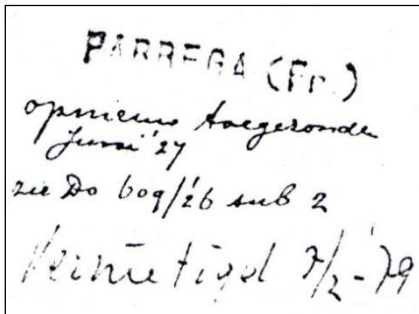 PARREGA (Fr.)
opnieuw toegezonden
Juni '27
zie Do 609/26 sub 2
Vernietigd 7/2-79